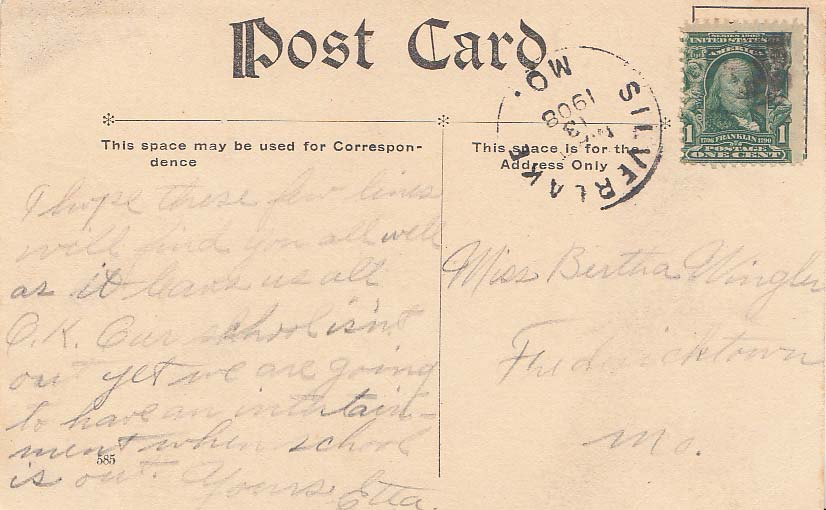 Post Card
SILVERLAKE
MO.
13
1908
SERIES 1902
UNITED STATES OF
AMERICA
1 1706 FRANKLIN 1790 1
POSTAGE
ONE CENT
This space may be used for Correspon-
dence
This space is for the
Address Only
I hope these few lines
will find you all well
as it leave us all
O.K. Our school isn't
out yet we are going
to have an intertain-
ment when school
is out. Yours Etta.
585
Miss Bertha Wingler
Fredricktown
Mo.